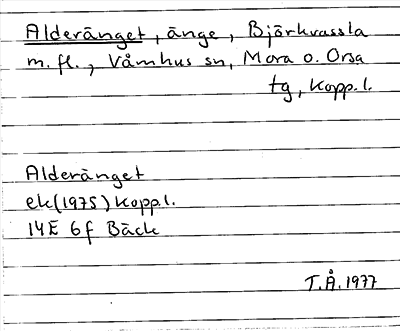 Alderänget, änge, Bjärkvassla
m. fl., Våmhus sn, Mora o. Orsa
tg, Kopp.l.
Alderänget
ek(1975) Kopp.l.
14E 6f Bäck
T.Å.1977